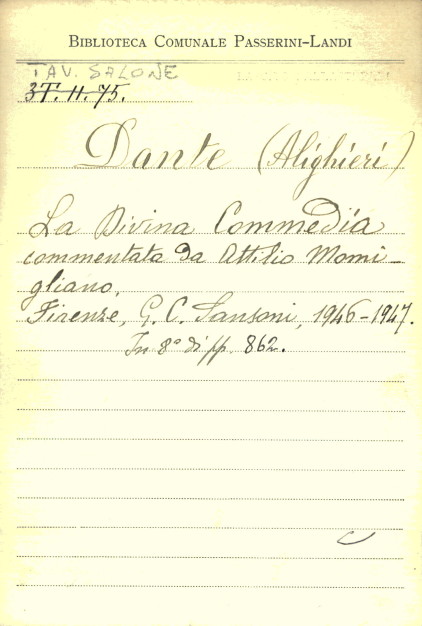 BIBLIOTECA COMUNALE PASSERINI-LANDI
TAV. SALONE
3T. 11. 75.
Dante (Alighieri)
La Divina Commedia
commentata da Attilio Momi-
gliano,
Firenze, G. C. Sansoni, 1946-1947.
In 8° di pp. 862.